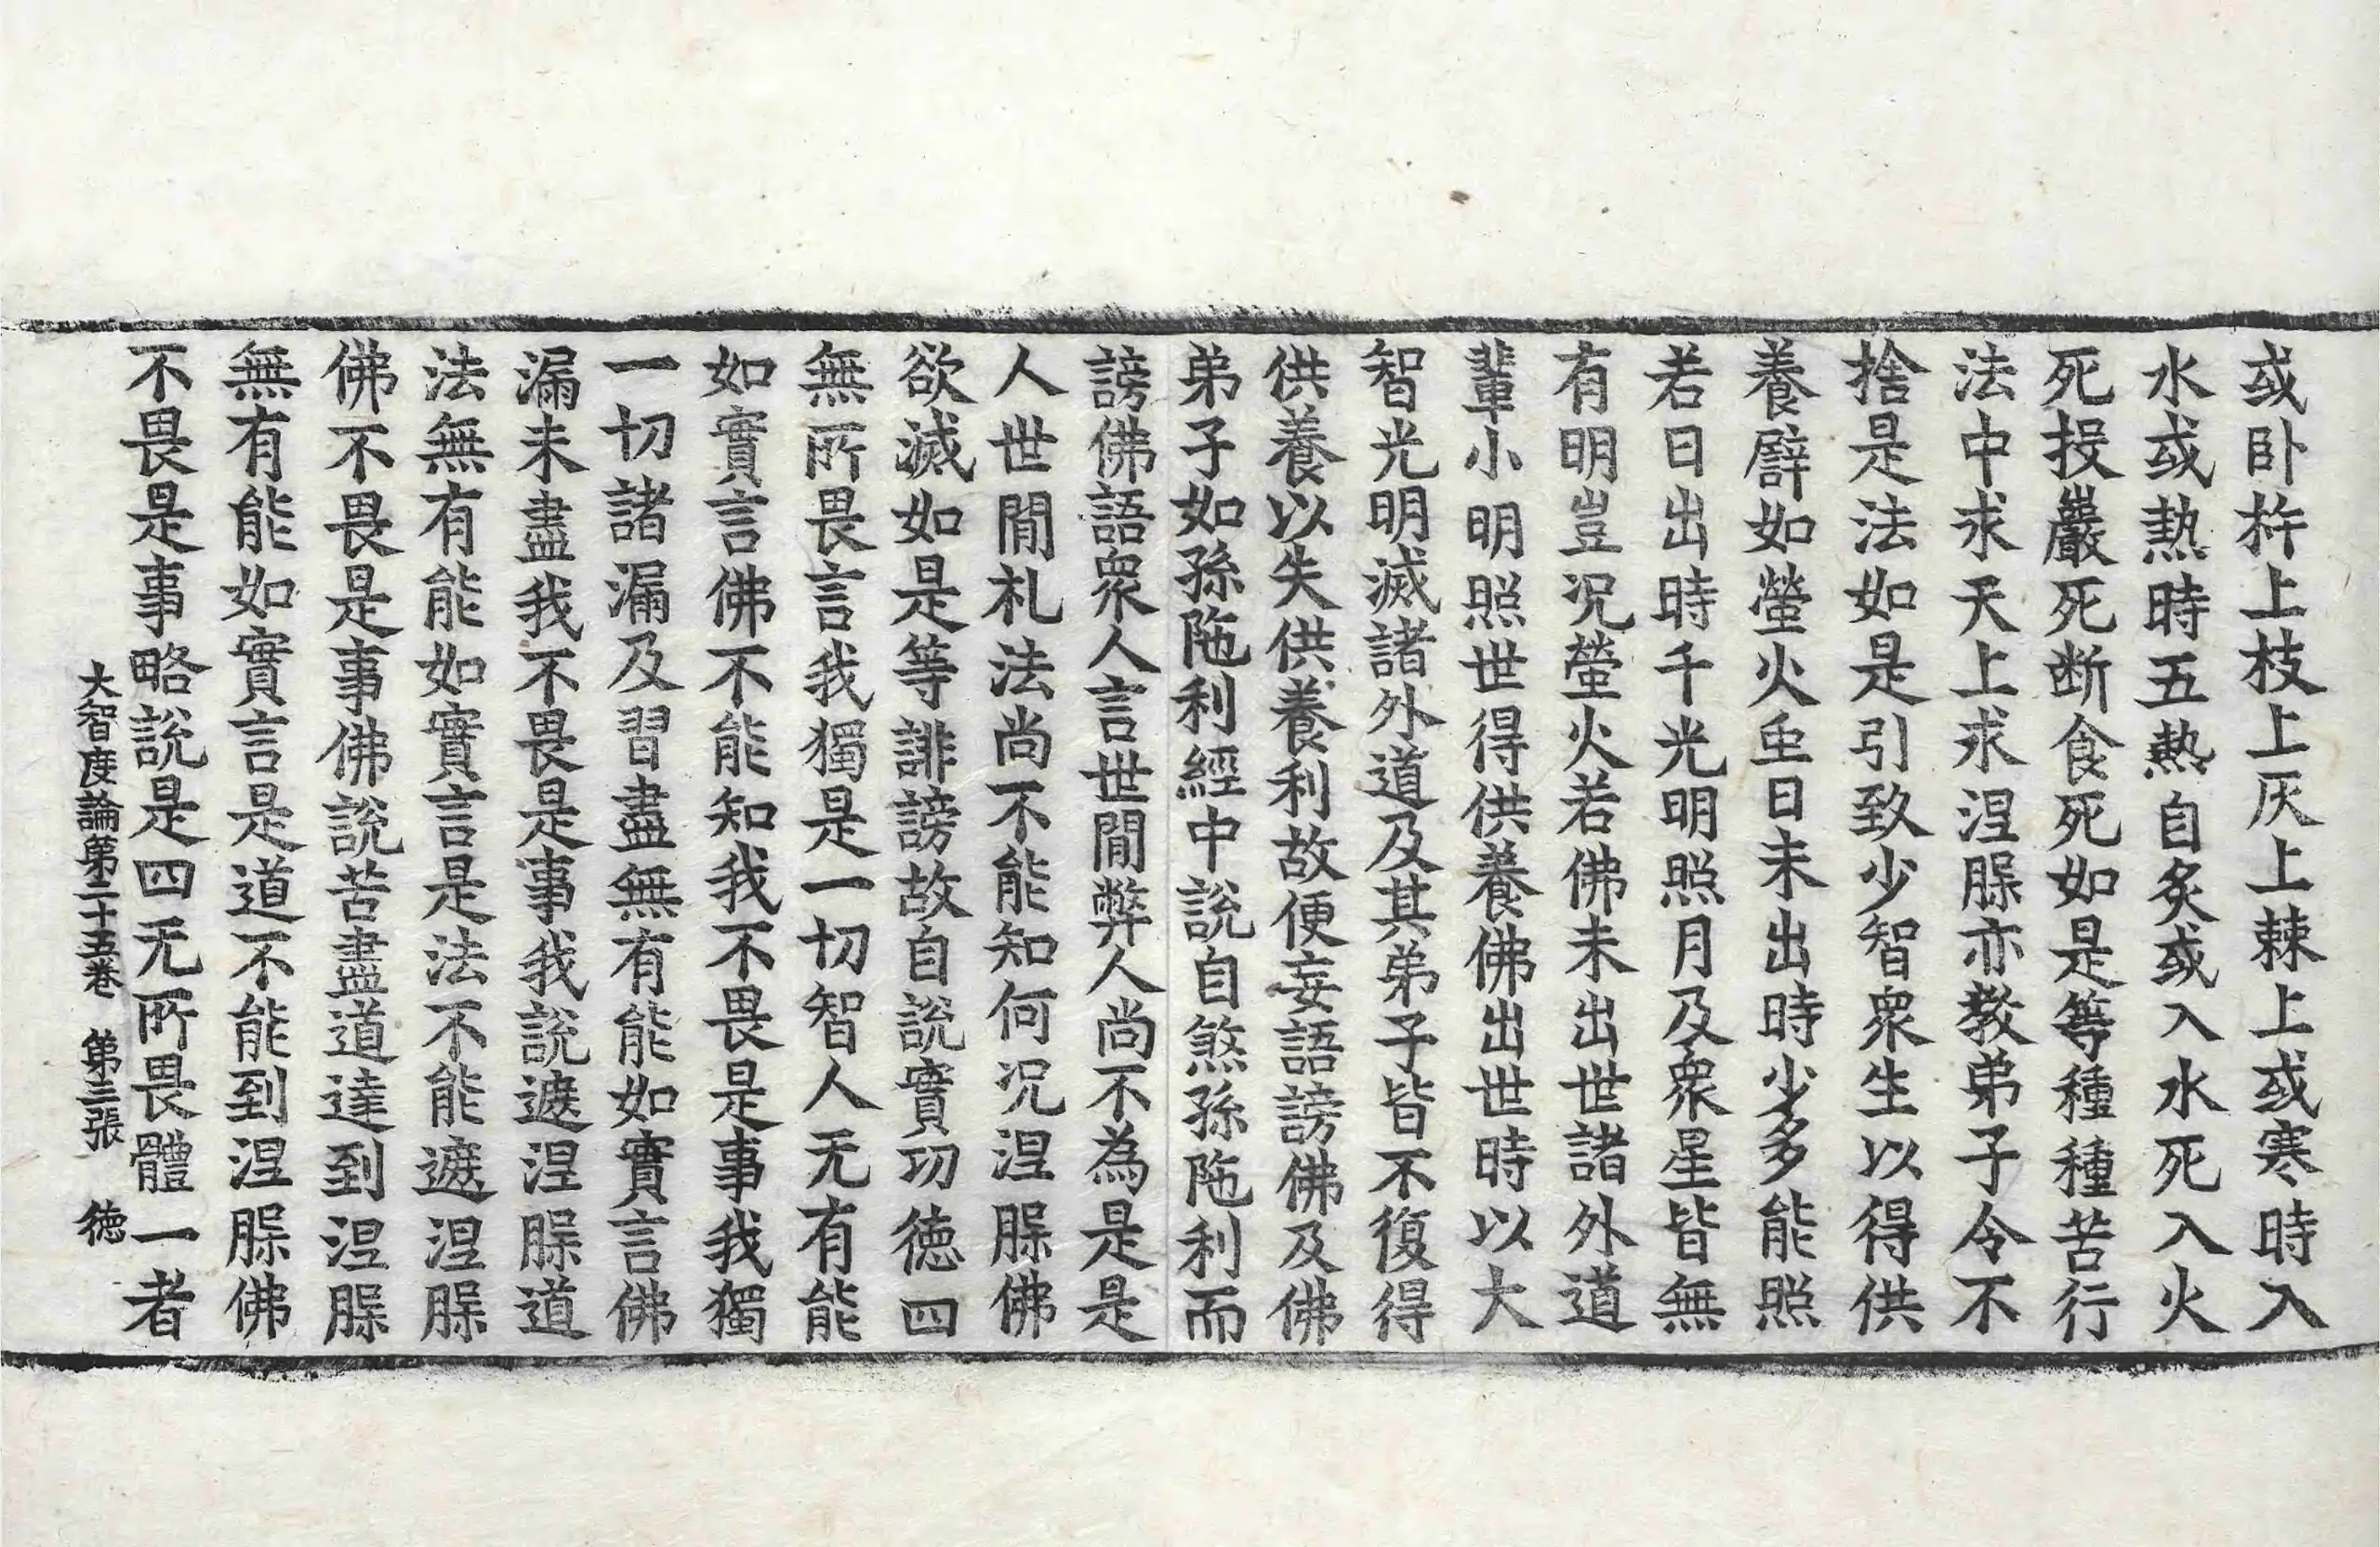 或卧杵上枝上灰上棘上或寒時入
水或熱時五熱自炙或入水死入火
死投巖死断食死如是等種種苦行
法中求天上求涅槃亦教弟子令不
捨是法如是引致少智衆生以得供
養譬如螢火虫日未出時少多能照
若日出時千光明照月及衆星皆無
有明豈况螢火若佛未出世諸外道
輩小明照世得供養佛出世時以大
智光明滅諸外道及其弟子皆不復得
供養以失供養利故便妄語謗佛及佛
弟子如孫陁利經中說自煞孫陁利而
謗佛語衆人言世間弊人尚不為是是
人世間札法尚不能知何况涅槃佛
欲滅如是等誹謗故自說實功徳四
無所畏言我獨是一切智人无有能
如實言佛不能知我不畏是事我獨
一切諸漏及習盡無有能如實言佛
漏未盡我不畏是事我說遮涅槃道
法無有能如實言是法不能遮涅槃
佛不畏是事佛說苦盡道達到涅槃
無有能如實言是道不能到涅槃佛
不畏是事略說是四无所畏體一者
大智度論第二十五卷 第三張 徳